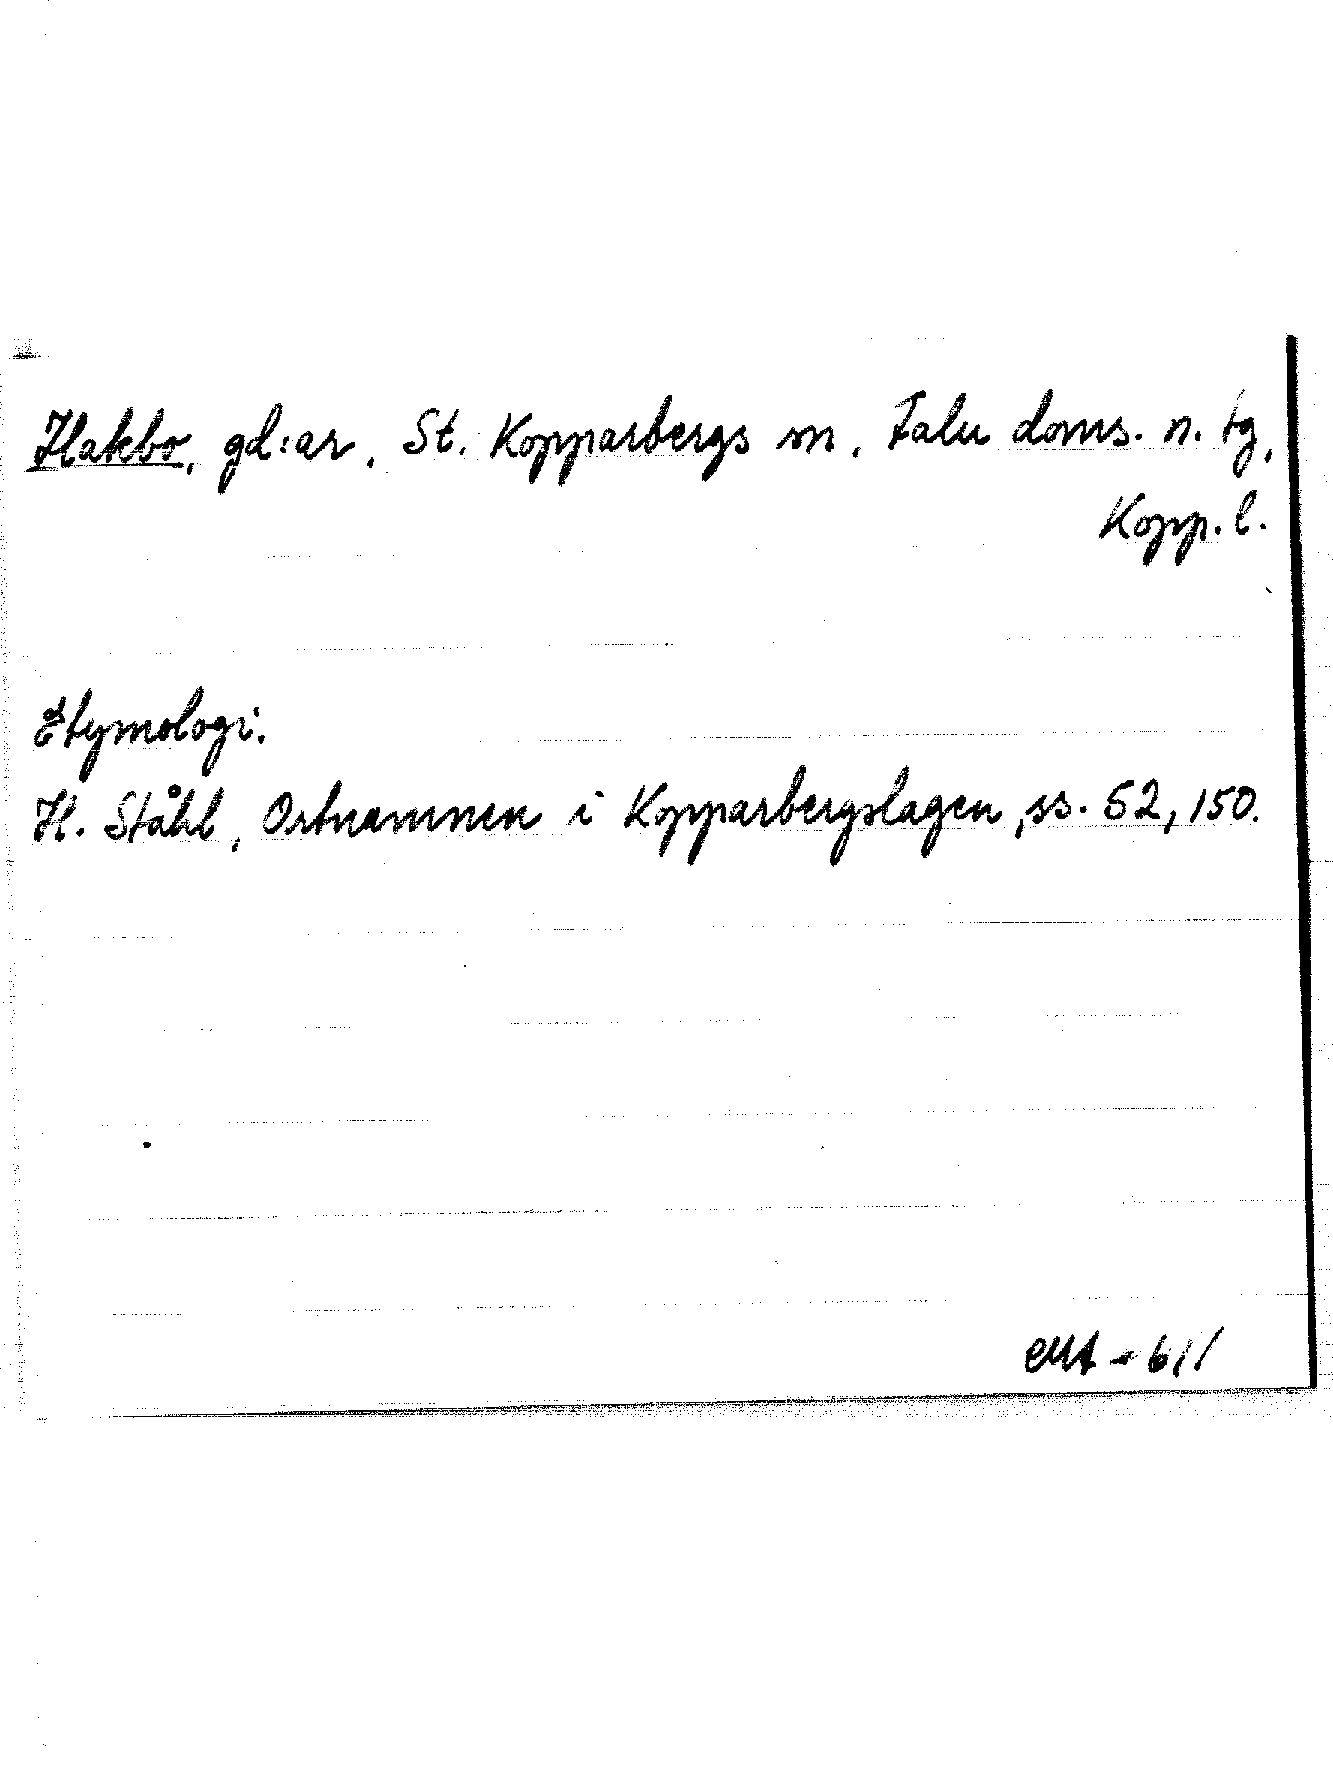 Hakbo, gd:ar, St. Kopparbergs sn, Falu doms. n. tg,
Kopp. l.
Etymologi.
H. Ståhl, Ortnamnen i Kopparbergslagen, ss. 52, 150.